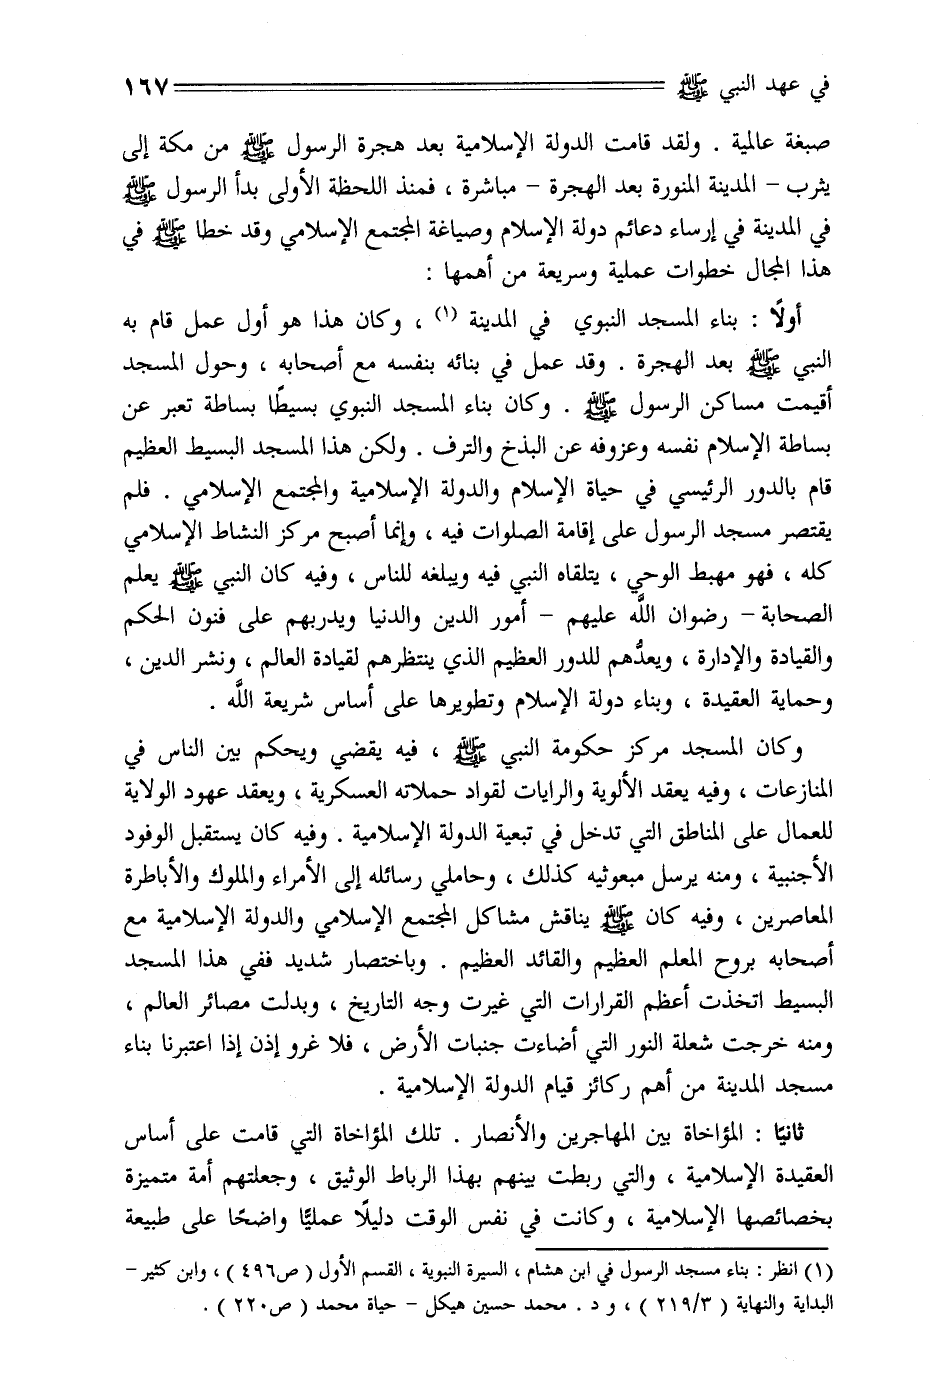 في عهد النبي ﷺ ١٦٧
صبغة عالمية . ولقد قامت الدولة الإسلامية بعد هجرة الرسول ﷺ من مكة إلى
يثرب – المدينة المنورة بعد الهجرة – مباشرة ، فمنذ اللحظة الأولى بدأ الرسول ﷺ
في المدينة في إرساء دعائم دولة الإسلام وصياغة المجتمع الإسلامي وقد خطا ﷺ في
هذا المجال خطوات عملية وسريعة من أهمها :
أولًا : بناء المسجد النبوي في المدينة (١) ، وكان هذا هو أول عمل قام به
النبي ﷺ بعد الهجرة . وقد عمل في بنائه بنفسه مع أصحابه ، وحول المسجد
أقيمت مساكن الرسول ﷺ . وكان بناء المسجد النبوي بسيطًا بساطة تعبر عن
بساطة الإسلام نفسه وعزوفه عن البذخ والترف . ولكن هذا المسجد البسيط العظيم
قام بالدور الرئيسي في حياة الإسلام والدولة الإسلامية والمجتمع الإسلامي . فلم
يقتصر مسجد الرسول على إقامة الصلوات فيه ، وإنما أصبح مركز النشاط الإسلامي
كله ، فهو مهبط الوحي ، يتلقاه النبي فيه ويبلغه للناس ، وفيه كان النبي ﷺ يعلم
الصحابة – رضوان اللَّه عليهم – أمور الدين والدنيا ويدربهم على فنون الحكم
والقيادة والإدارة ، ويعدُّهم للدور العظيم الذي ينتظرهم لقيادة العالم ، ونشر الدين ،
وحماية العقيدة ، وبناء دولة الإسلام وتطويرها على أساس شريعة اللَّه .
وكان المسجد مركز حكومة النبي ﷺ ، فيه يقضي ويحكم بين الناس في
المنازعات ، وفيه يعقد الألوية والرايات لقواد حملاته العسكرية ، ويعقد عهود الولاية
للعمال على المناطق التي تدخل في تبعية الدولة الإسلامية . وفيه كان يستقبل الوفود
الأجنبية ، ومنه يرسل مبعوثيه كذلك ، وحاملي رسائله إلى الأمراء والملوك والأباطرة
المعاصرين ، وفيه كان ﷺ يناقش مشاكل المجتمع الإسلامي والدولة الإسلامية مع
أصحابه بروح المعلم العظيم والقائد العظيم . وباختصار شديد ففي هذا المسجد
البسيط اتخذت أعظم القرارات التي غيرت وجه التاريخ ، وبدلت مصائر العالم ،
ومنه خرجت شعلة النور التي أضاءت جنبات الأرض ، فلا غرو إذن إذا اعتبرنا بناء
مسجد المدينة من أهم ركائز قيام الدولة الإسلامية .
ثانيًا : المؤاخاة بين المهاجرين والأنصار . تلك المؤاخاة التي قامت على أساس
العقيدة الإسلامية ، والتي ربطت بينهم بهذا الرباط الوثيق ، وجعلتهم أمة متميزة
بخصائصها الإسلامية ، وكانت في نفس الوقت دليلًا عمليًّا واضحًا على طبيعة
(١) انظر : بناء مسجد الرسول في ابن هشام ، السيرة النبوية ، القسم الأول ( ص٤٩٦ ) ، وابن كثير –
البداية والنهاية ( ٢١٩/٣ ) ، و د . محمد حسين هيكل – حياة محمد ( ص٢٢٠ ) .